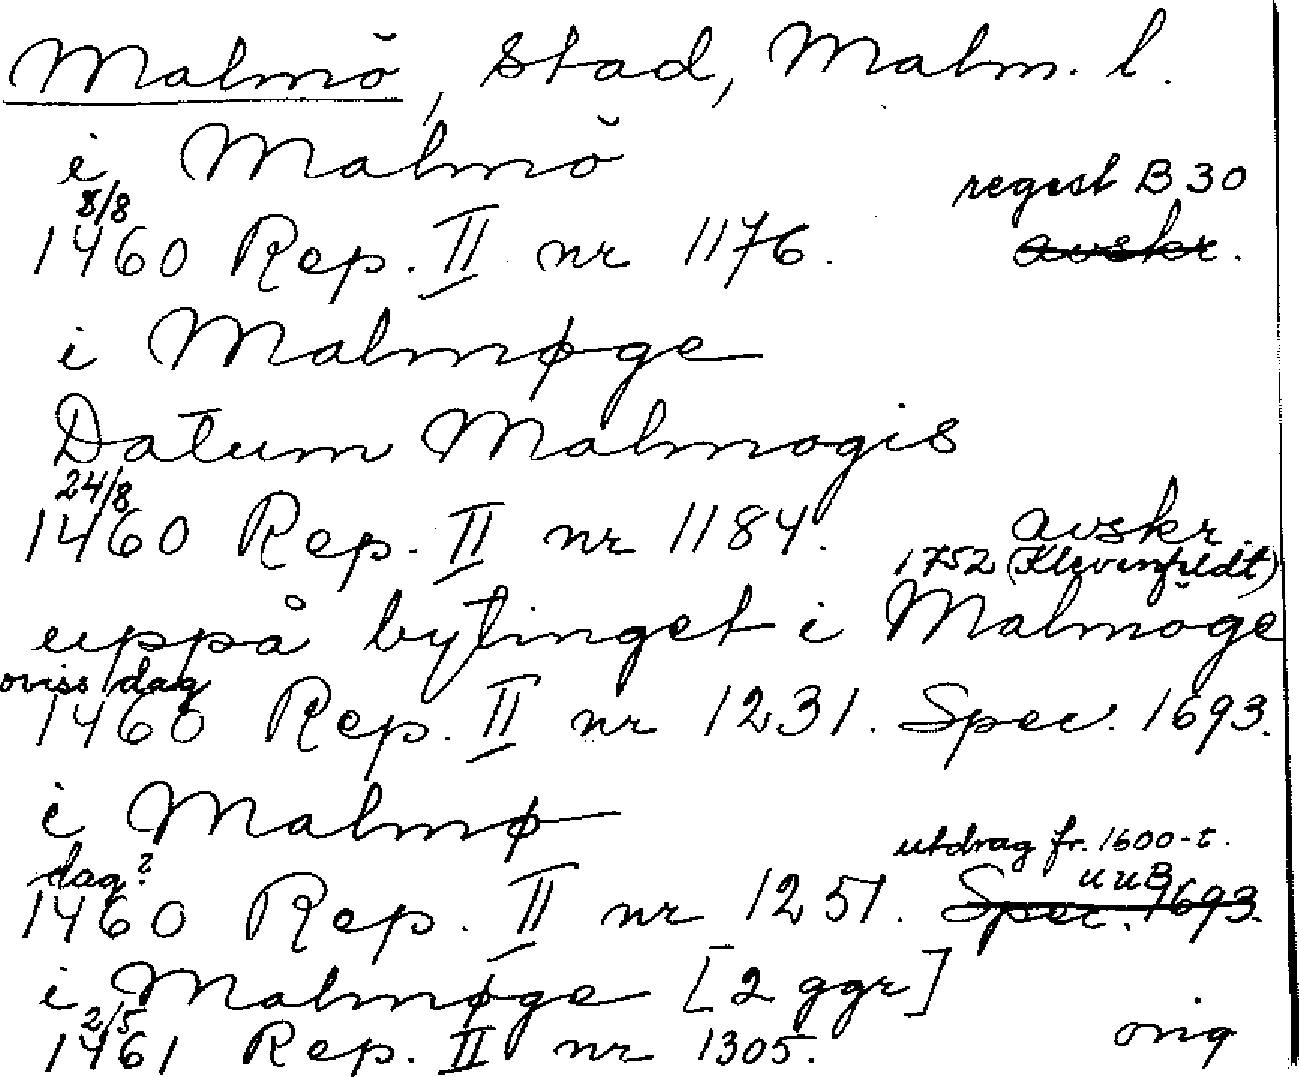 Malmö, stad, Malm. l.
i Malmö
regest B 30
8/8
1460 Rep. II nr 1176. avskr.
i Malmøge
Datum Malmogis
24/8
1460 Rep. II nr 1184. avskr.
1752 (Klevenfeldt)
uppå bytinget i Malmöge
oviss dag
1460 Rep. II nr 1231. Spec. 1693.
i Malmø
utdrag fr. 1600-t.
dag? UUB
1460 Rep. II nr 1251. Spec. 1693.
i Malmøge [2 ggr]
2/5
1461 Rep. II nr 1305. orig